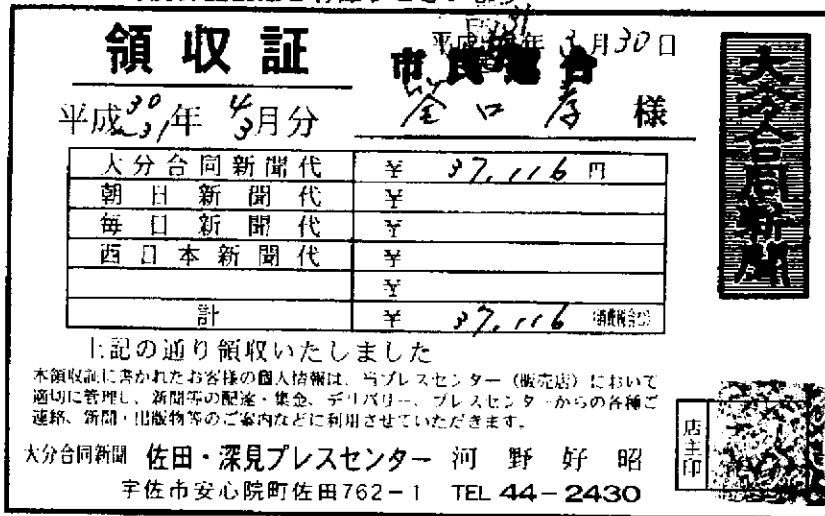 領収証
平成31年3月30日
市民連合
口 孝 様
平成30年4月分
31 3
大分合同新聞代 ¥ 37,116 円
朝日新聞代 ¥
毎日新聞代 ¥
西日本新聞代 ¥
¥
計 ¥ 37,116 (消費税含む)
上記の通り領収いたしました
本領収証に書かれたお客様の個人情報は、当プレスセンター(販売店)において
適切に管理し、新聞等の配達・集金、デリバリー、プレスセンターからの各種ご
連絡、新聞・出版物等のご案内などに利用させていただきます。
大分合同新聞 佐田・深見プレスセンター 河野好昭
宇佐市安心院町佐田762-1 TEL 44-2430
大分合同新聞
店主印